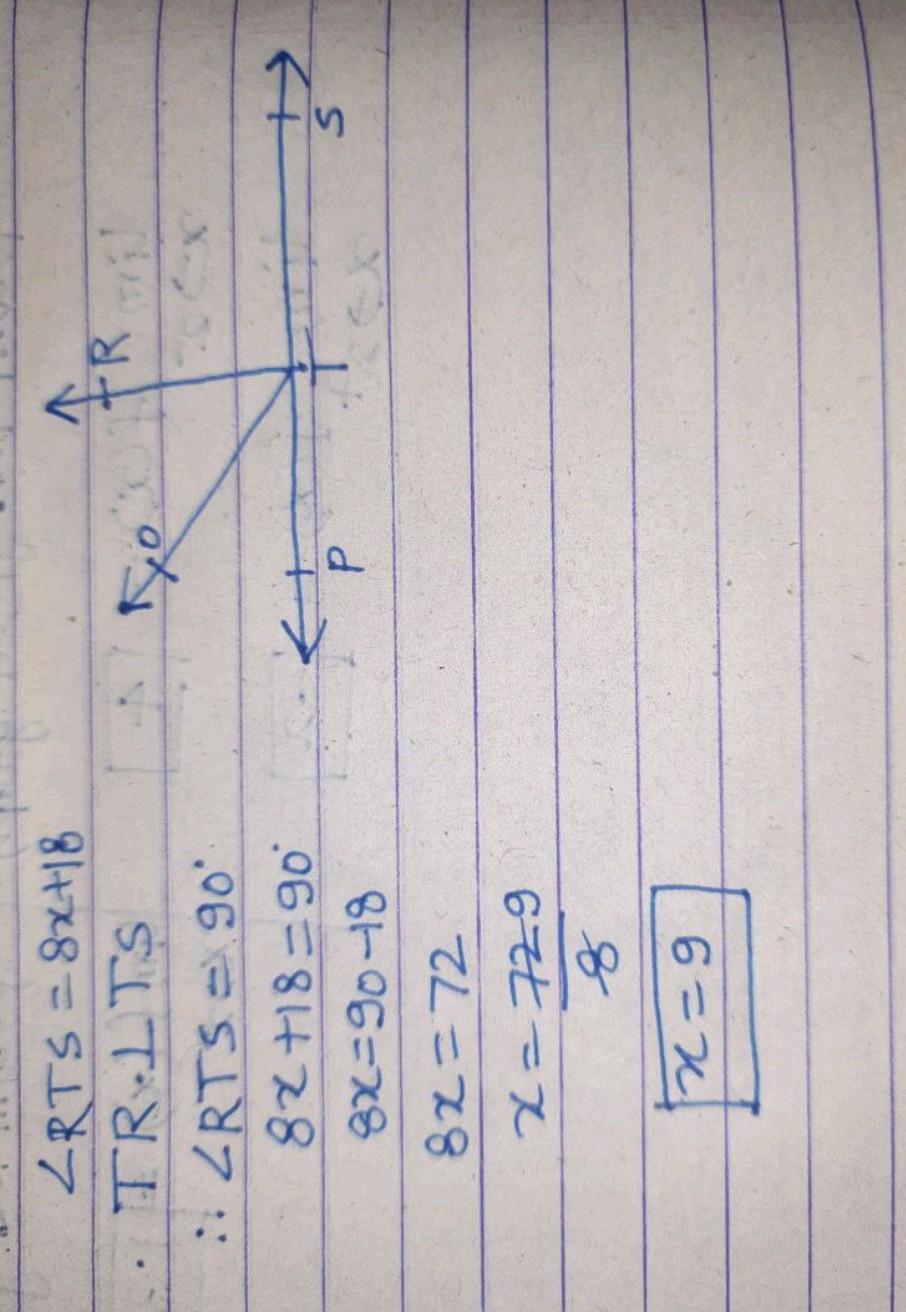 ∠RTS = 8x+18
∵ TR ⊥ TS
∴ ∠RTS = 90°
8x +18 = 90°
8x = 90 -18
8x = 72
x = 72 9
8
x = 9
R
O
P
T
S